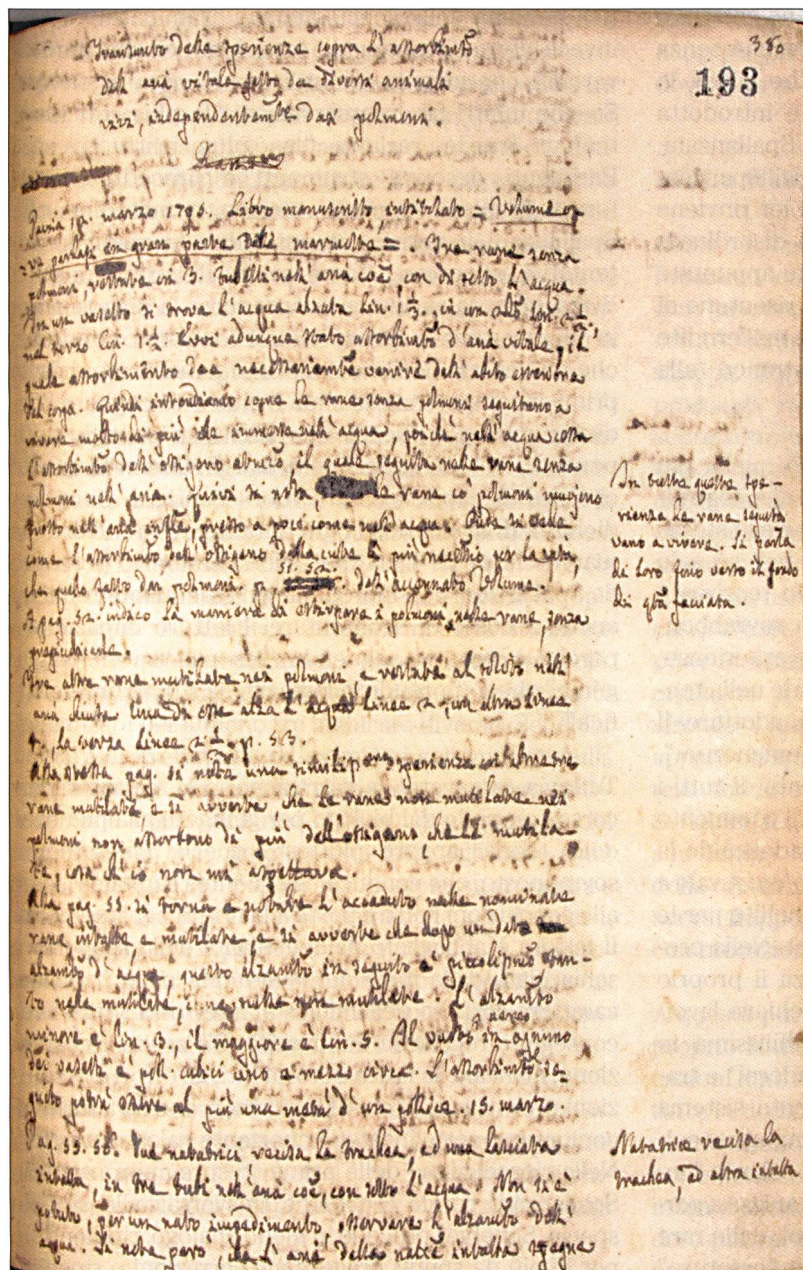 380
193
Transunto delle sperienze sopra l'assorbimto
dell'aria vitale fatto da diversi animali
vivi, independentemte dai polmoni.
Rane
Pavia 12. marzo 1795. Libro manuscritto, intitolato = Volume ove
parlasi in gran parte delle marmotte =. Tre rane senza
polmoni, vertute in 3. tubetti nell'aria coe, con di sotto l'acqua.
In un vasetto si trova l'acqua alzata lin. 1 1/3., in un altro lin.
nel terzo lin. 1 1/2. Evvi adunque stato assorbimto d'aria vitale, il
quale assorbimento dee necessariamte venire dall'abito esteriore
del corpo. Quindi intendiamo come le rane senza polmoni seguitano a
vivere molto di più che immerse nell'acqua, poichè nell'acqua cessa
l'assorbimto dell'ossigeno aereo, il quale seguita nelle rane senza
polmoni nell'aria. Quivi si nota, le rane co' polmoni muojono
presto nell'aria, presto a poco come nell'acqua. Onde si vede
come l'assorbimto dell'ossigeno della cute è più necessio per la vita,
che quello fatto dai polmoni. p. 51. 52. dell'accennato Volume.
A pag. 52. indico la maniera di estirpare i polmoni nelle rane, senza
pregiudicarle.
Tre altre rane mutilate nei polmoni, e vertute al solito nell'
aria chiusa una di esse alza l'acqua linee 2, un'altra linee
la terza linee 2 1/2. p. 53.
Alla stessa pag. si nota una simil sperienza con altre tre
rane mutilate, e si avverte, che le rane non mutilate nei
polmoni non assorbono di più dell'ossigeno, che le mutila-
te, cosa ch'io non mi aspettava.
Alla pag. 55. si torna a notare l'accaduto nelle nominate
rane intatte e mutilate, e si avverte che dopo un dato
alzamto d'acqua, questo alzamto in seguito è piccolismo tan-
to nelle mutilate, che nelle non mutilate. L'alzamto
minore è lin. 3., il maggiore è lin. 5. Al vuoto aereo in ognuno
dei vasetti è poll. cubici uno e mezzo circa. L'assorbimto se-
guito potrà essere al più una metà d'un pollice. 15. marzo.
Pag. 55. 56. Due natatrici, recisa la trachea, ed una lasciata
intatta, in tre tubi nell'aria coe, con sotto l'acqua. Non si è
potuto, per un nato impedimento, osservare l'alzamto dell'
acqua. Si nota però, che l'aria della natce intatta spegne
In tutte queste spe-
rienze le rane seguita
vano a vivere. Si parla
di loro poi verso il fondo
di qta facciata.
Natatrice recisa la
trachea, ed altra intatta